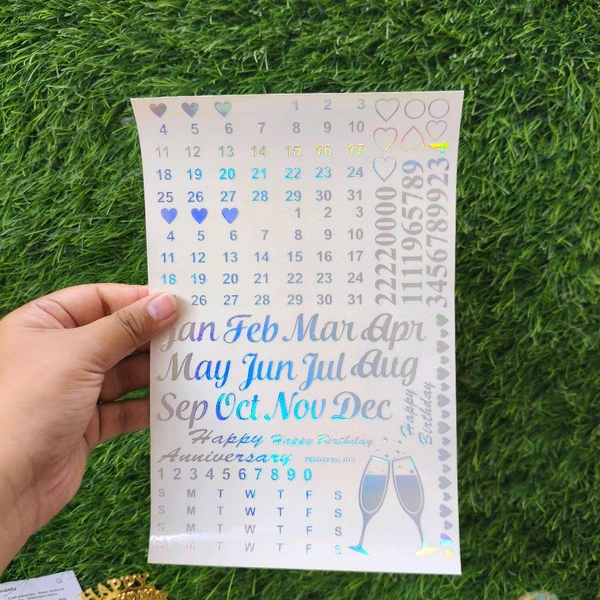 1 2 3
4 5 6 7 8 9 10
11 12 13 14 15 16 17
18 19 20 21 22 23 24
25 26 27 28 29 30 31
1 2 3
4 5 6 7 8 9 10
11 12 13 14 15 16 17
18 19 20 21 22 23 24
26 27 28 29 30 31
22220000
1111965789
3456789923
Jan Feb Mar Apr
May Jun Jul Aug
Sep Oct Nov Dec
Happy
Birthday
Happy Happy Birthday
Anniversary
1 2 3 4 5 6 7 8 9 0
S M T W T F S
S M T W T F S
S M T W T F S
S M T W T F S
HAPPY